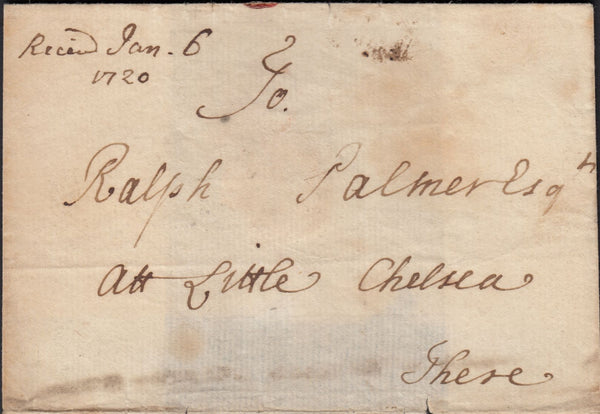 Receivd Jan. 6
1720
To.
Ralph Palmer Esqr
Att Little Chelsea
These